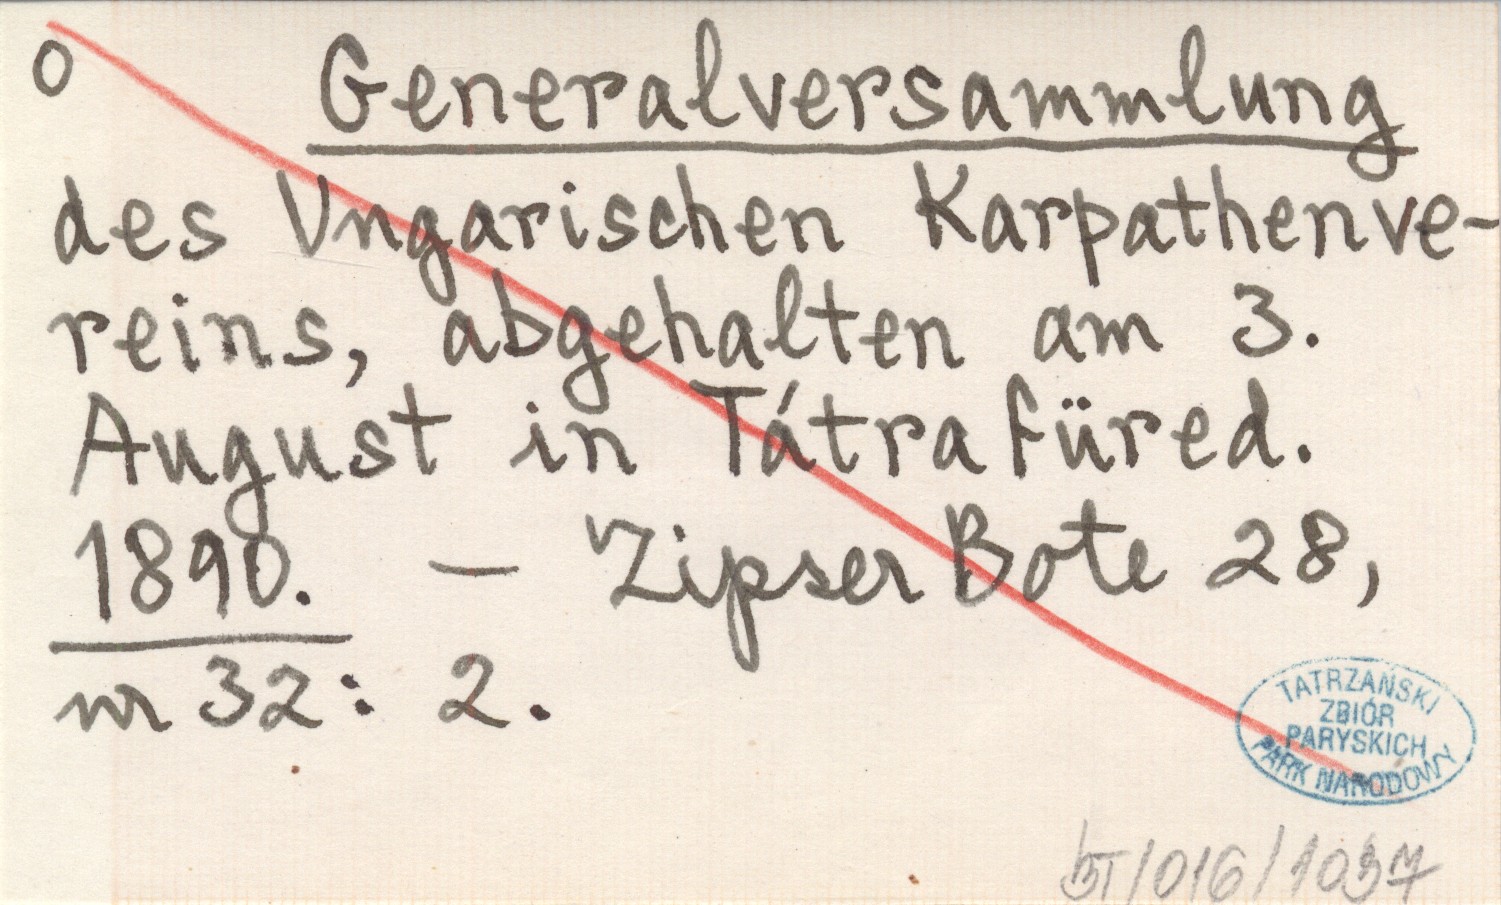 o Generalversammlung
des Ungarischen Karpathenve-
reins, abgehalten am 3.
August in Tátrafüred.
1890. — Zipser Bote 28,
nr 32: 2.
TATRZAŃSKI
ZBIÓR
PARYSKICH
PARK NARODOWY
BT/016/1037